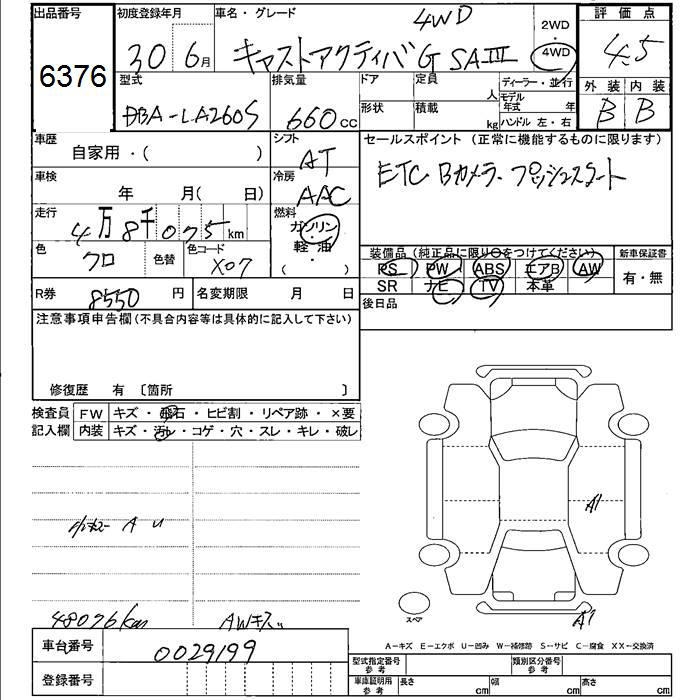 出品番号
6376
初度登録年月
30 6月
車名・グレード
4WD
キャストアクティバG SAIII
2WD
・
4WD
評価点
4.5
外装 内装
B B
型式
DBA-LA260S
排気量
660cc
ドア
形状
定員
人
積載
kg
ディーラー・並行
モデル年式 年
ハンドル 左・右
車歴
自家用・( )
シフト
AT
セールスポイント (正常に機能するものに限ります)
ETC Bカメラ プッシュスタート
車検
年 月( 日)
冷房
AAC
走行
4万8千075km
燃料
ガソリン
軽・油
( )
色
クロ
色替
色コード
X07
装備品(純正品に限り○をつけてください)
PS PW ABS エアB AW
SR ナビ TV 本革
新車保証書
有・無
R券
8550円
名変期限 月 日
後日品
注意事項申告欄(不具合内容等は具体的に記入して下さい)
修復歴 有 〔箇所 〕
検査員記入欄
FW キズ・飛石・ヒビ割・リペア跡・×要
内装 キズ・汚れ・コゲ・穴・スレ・キレ・破レ
A U
48076km
AWキズ
A1
A1
スペア
A-キズ E-エクボ U-凹み W-補修跡 S-サビ C-腐食 XX-交換済
車台番号
0029199
登録番号
型式指定番号
参考
類別区分番号
参考
車庫証明用
参考
長さ cm 幅 cm 高さ cm